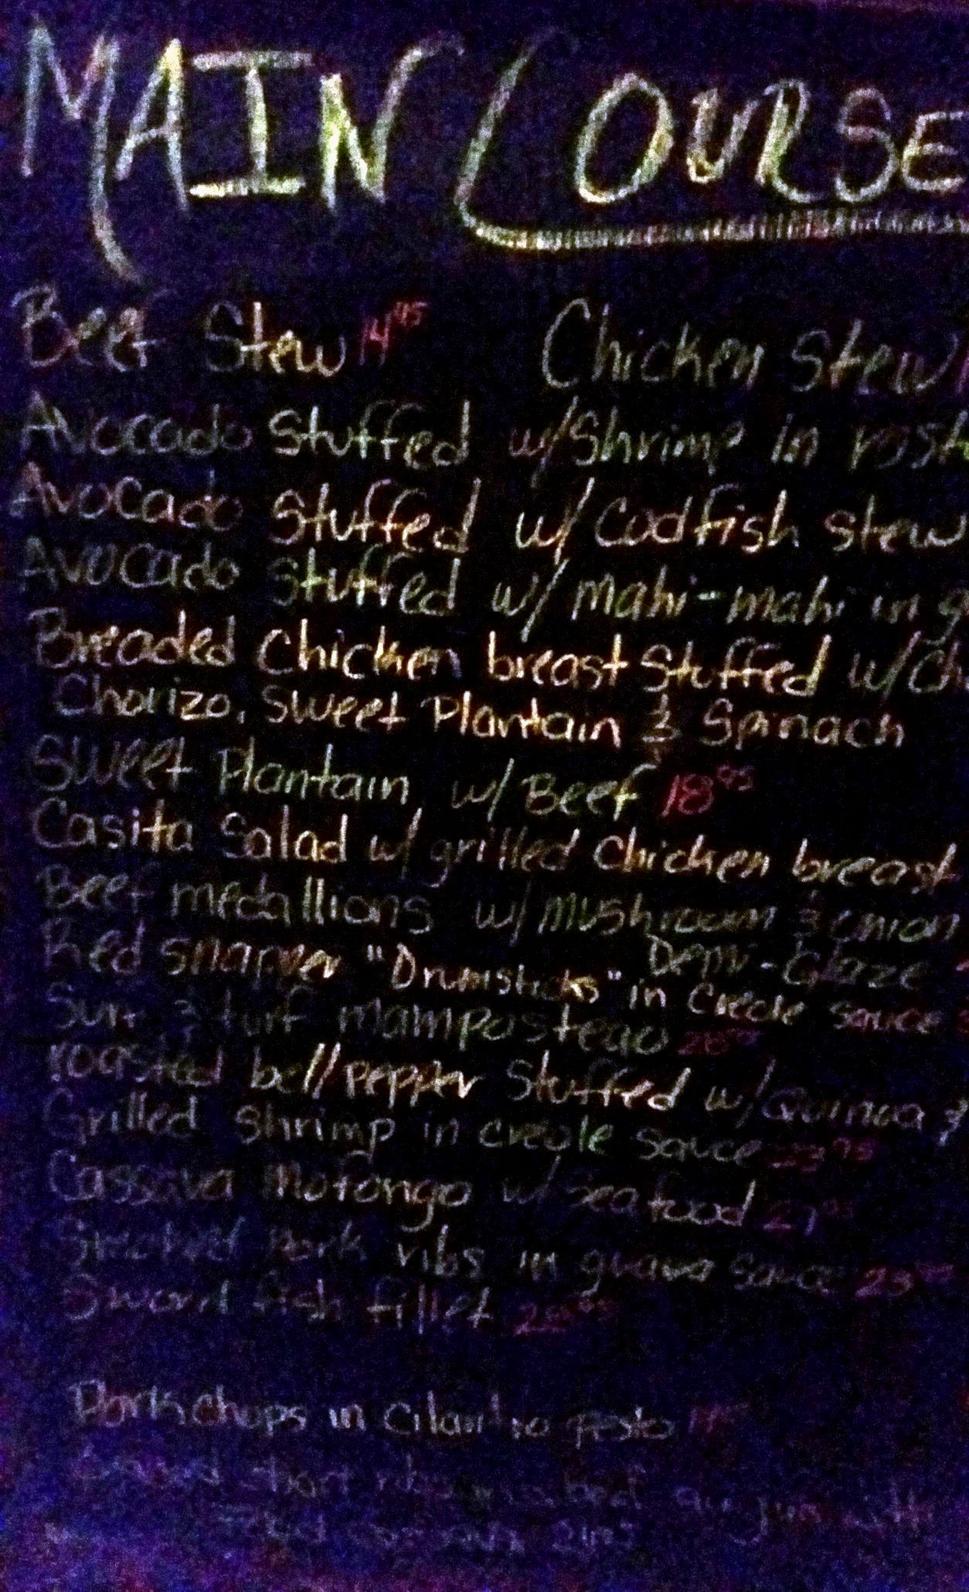 MAIN COURSE
Beef Stew 14 95 Chicken Stew
Avocado Stuffed w/Shrimp in
Avocado Stuffed w/ Codfish stew
Avocado stuffed w/ mahi-mahi in
Breaded Chicken breast Stuffed w/
Chorizo, Sweet Plantain & Spinach
Sweet Plantain w/ Beef 18 95
Casita Salad w/ grilled Chicken breast
Beef medallions w/ mushroom & onion
Demi-Glaze
Red snapper "Drumsticks" in Creole sauce
Surf & turf mamposteao
roasted bell pepper Stuffed w/ Quinua &
Grilled Shrimp in creole sauce 23 95
Cassava Mofongo w/ seafood 27 95
Pork ribs in guava sauce 23
Sword fish fillet
Porkchops in Cilantro pesto
short ribs au jus